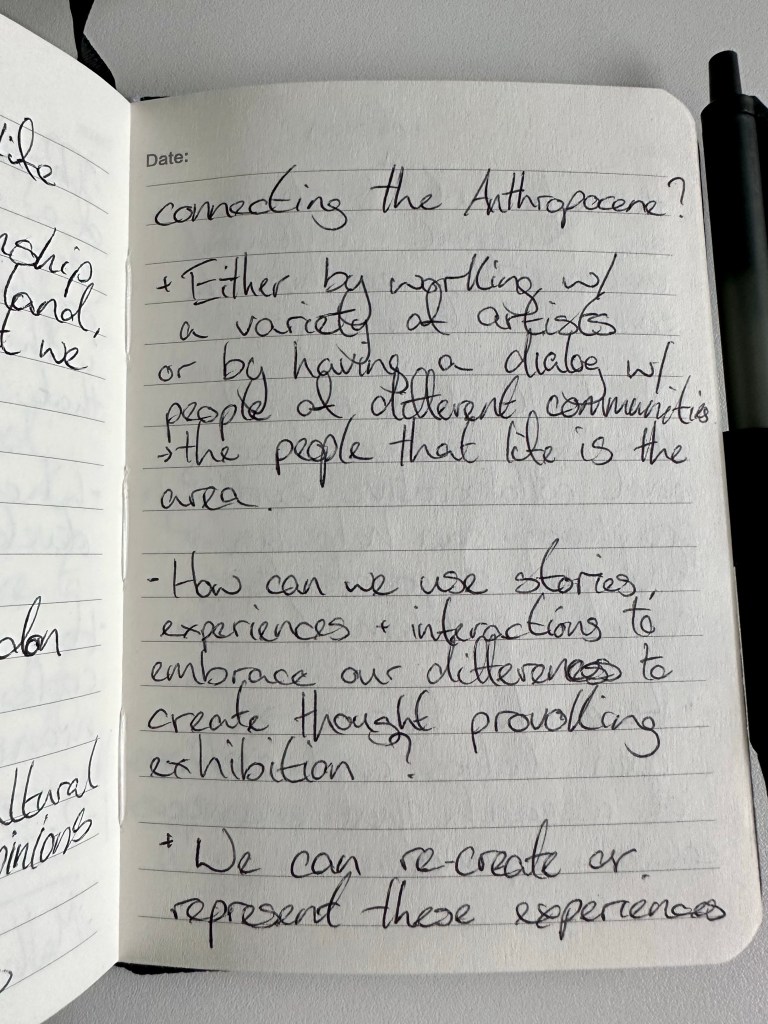 life
nship
land,
t we
ltural
pinions
Date:
connecting the Anthropocene?
+ Either by working w/
a variety of artists
or by having a dialog w/
people of different communities
→ the people that life is the
area.
- How can we use stories,
experiences + interactions to
embrace our differences to
create thought provolking
exhibition ?
* We can re-create or
represent these experiences